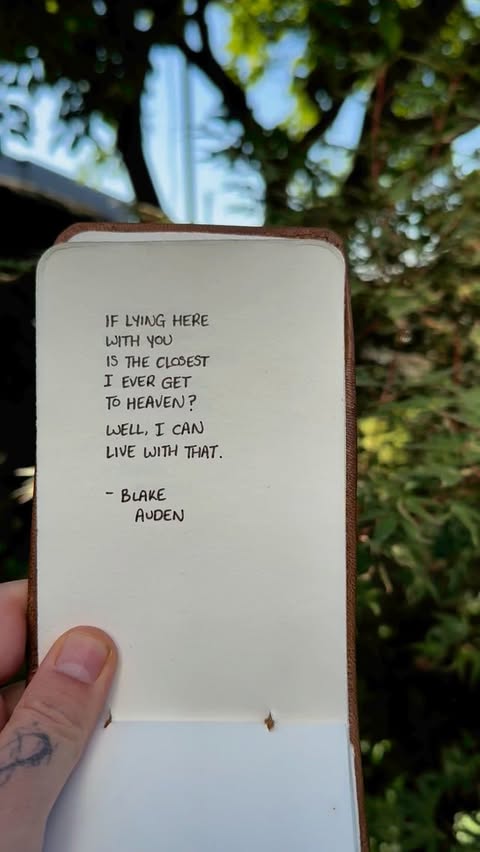 IF LYING HERE
WITH YOU
IS THE CLOSEST
I EVER GET
TO HEAVEN?
WELL, I CAN
LIVE WITH THAT.
- BLAKE
AUDEN